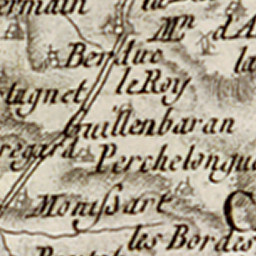 ermain
Mⁿ d'A
Berduc
la
le Roy
tagnet
Guillenbaran
regard
Perchelongue
Monissart
C
les Bordes